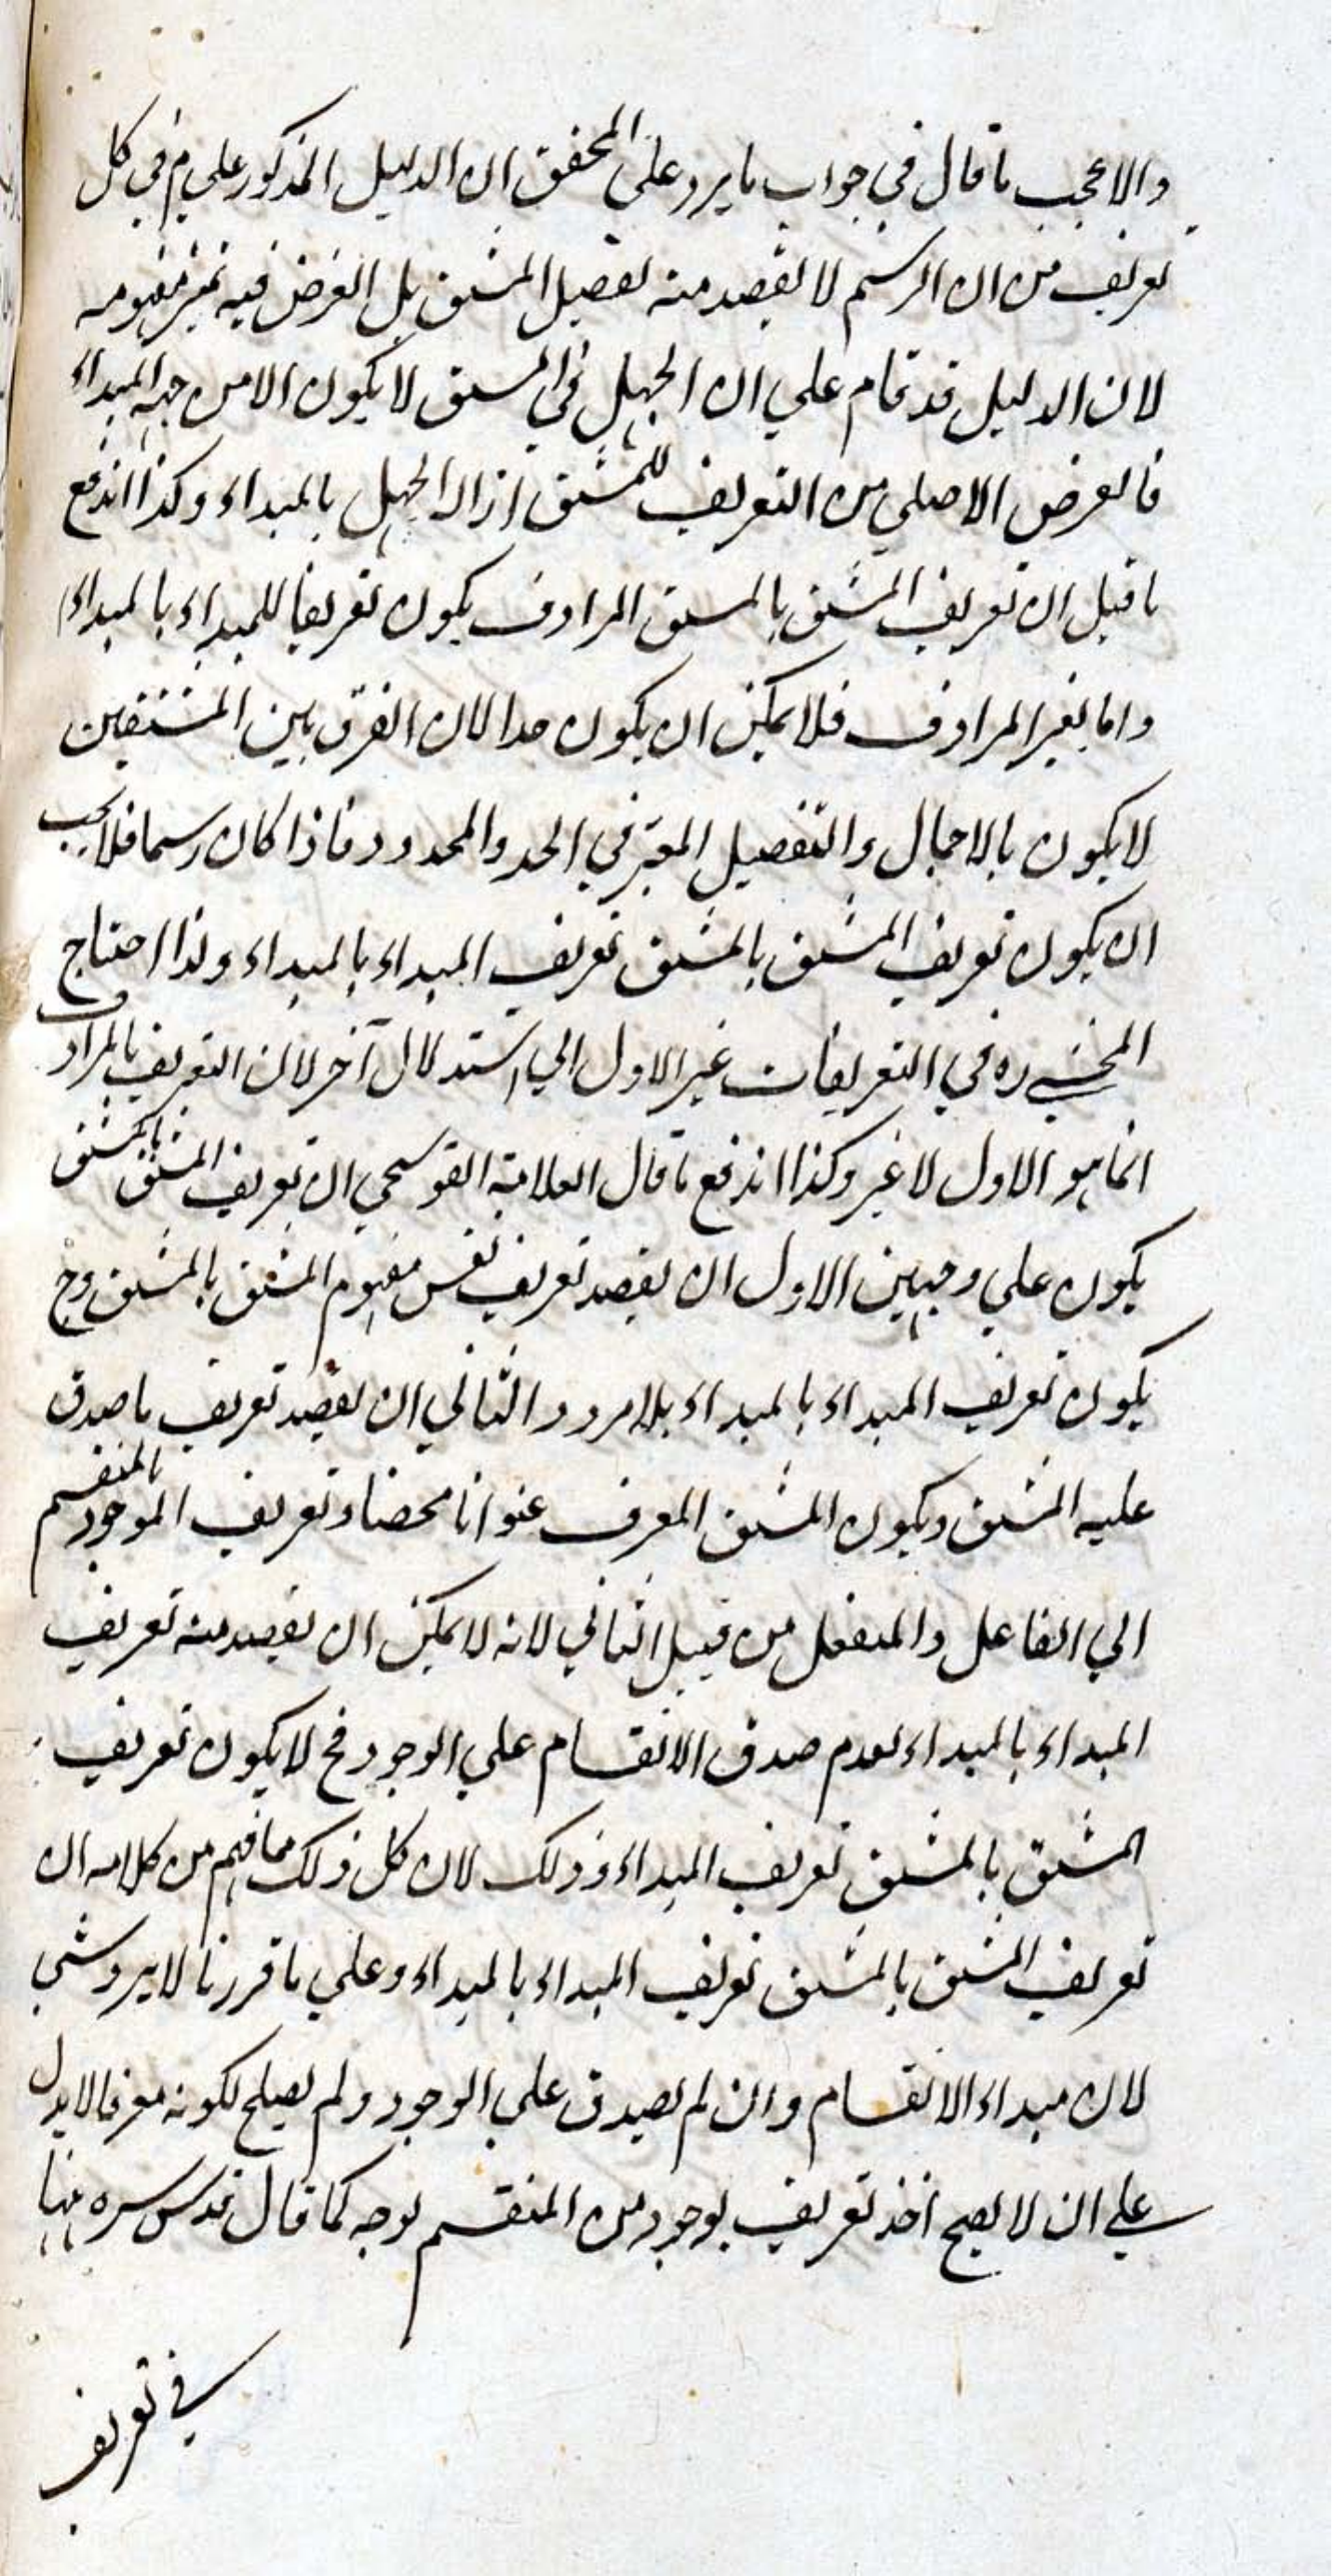 والاعجب ما قال في جواب ما يرد على المحقق ان الدليل المذكور على م في كل
تعريف من ان الرسم لا يقصد منه تفصيل المشتق بل الغرض فيه تميز مفهومه
لان الدليل قد قام علي ان الجهل في المشتق لا يكون الا من جهة المبداء
فالغرض الاصلي من التعريف للمشتق ازالة الجهل بالمبداء وكذا اندفع
ما قيل ان تعريف المشتق بالمشتق المرادف يكون تعريفا للمبداء بالمبداء
واما بغير المرادف فلا يمكن ان يكون حدا لان الفرق بين المشتقين
لا يكون بالاجمال والتفصيل المعتبر في الحد والمحدود فاذا كان رسما فلا يجب
ان يكون تعريف المشتق بالمشتق تعريف المبداء بالمبداء ولذا احتاج
المحشي ره في التعريفات غير الاول الي استدلال آخر لان التعريف بالمرادف
انما هو الاول لا غير وكذا اندفع ما قال العلامة القوسجي ان تعريف المشتق بالمشتق
يكون علي وجهين الاول ان يقصد تعريف نفس مفهوم المشتق بالمشتق وح
يكون تعريف المبداء بالمبداء بلا مرد والثاني ان يقصد تعريف ما صدق
عليه المشتق ويكون المشتق المعرف عنوانا محضا وتعريف الموجود بالمنقسم
الي الفاعل والمنفعل من قبيل الثاني لانه لا يمكن ان يقصد منه تعريف
المبداء بالمبداء لعدم صدق الانقسام علي الوجود فح لا يكون تعريف
المشتق بالمشتق تعريف المبداء وذلك لان كل ذلك مما فهم من كلامه ان
تعريف المشتق بالمشتق تعريف المبداء بالمبداء وعلي ما قررنا لا يرد شي
لان مبداء الانقسام وان لم يصدق علي الوجود ولم يصلح لكونه معرفا لا يدل
علي ان لا يصح اخذ تعريف لوجود من المنقسم بوجه كما قال قدس سره منها
في تعريف